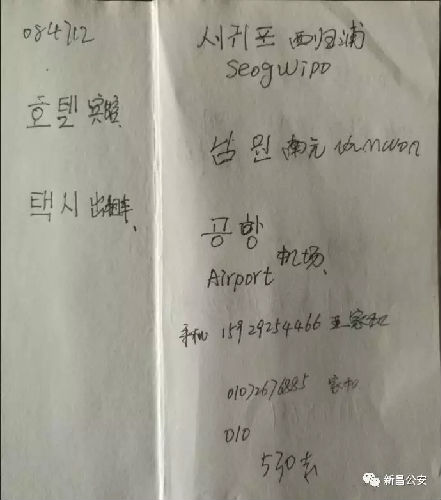 084712
호텔 宾馆
택시 出租车、
서귀포 西归浦
Seogwipo
남원 南元 Namwon
공항
Airport 机场、
手机 15929254466 王家和
01072676885 家和
010
530去
新昌公安